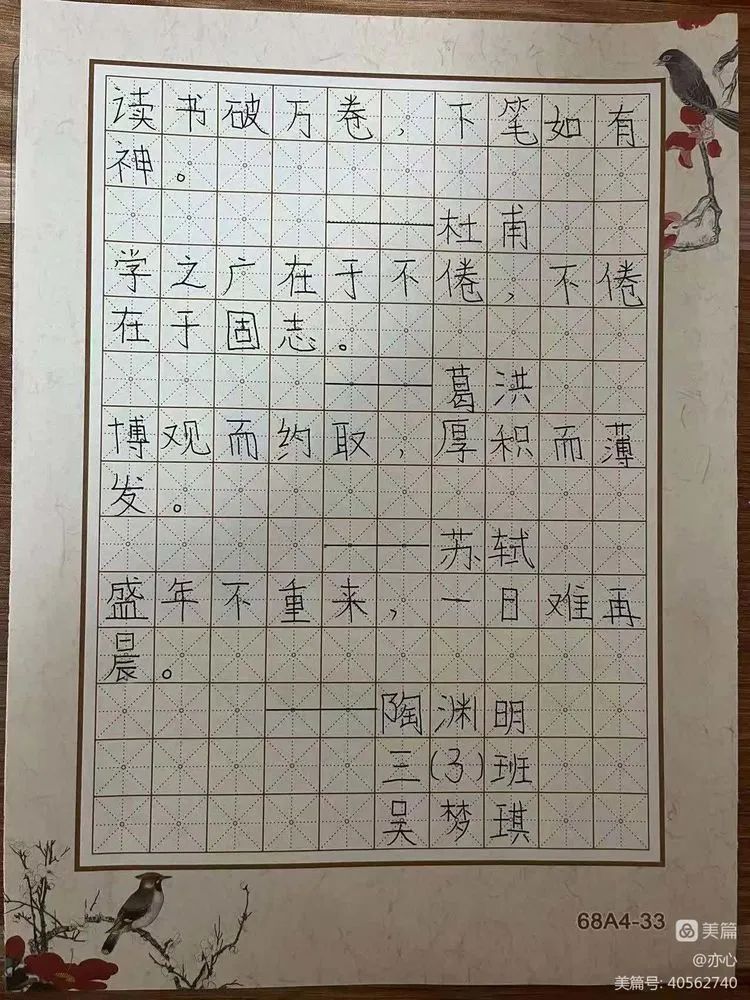 读书破万卷，下笔如有
神。
——杜甫
学之广在于不倦，不倦
在于固志。
——葛洪
博观而约取，厚积而薄
发。
——苏轼
盛年不重来，一日难再
晨。
——陶渊明
三(3)班
吴梦琪
68A4-33
美篇
@亦心
美篇号: 40562740